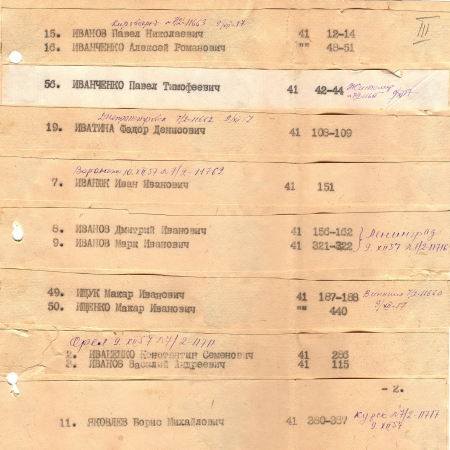 Кировоград № 7/2-11663 9/XII-57
III
15. ИВАНОВ Павел Николаевич 41 12-14
16. ИВАНЧЕНКО Алексей Романович "" 48-51
56. ИВАНЧЕНКО Павел Тимофеевич 41 42-44
Днепропетровск 7/2-11662 9/XII-7
19. ИВАТИНА Федор Денисович 41 108-109
Воронеж 10.XII57 №7/2-11762
7. ИВАНЮК Иван Иванович 41 151
8. ИВАНОВ Дмитрий Иванович 41 156-162 Ленинград
9. ИВАНОВ Марк Иванович 41 321-322 9.XII57 №7/2-11716
49. ИЩУК Макар Иванович 41 187-188 Винница 7/2-11660
50. ИЩЕНКО Макар Иванович "" 440 9/XII-57
Орел 9.XII57 №7/2-11711
2. ИВАНЕНКО Константин Семенович 41 286
3. ИВАНОВ Василий Андреевич 41 115
- 2.
11. ЯКОВЛЕВ Борис Михайлович 41 380-387 Курск №7/2-11717
9.XII57